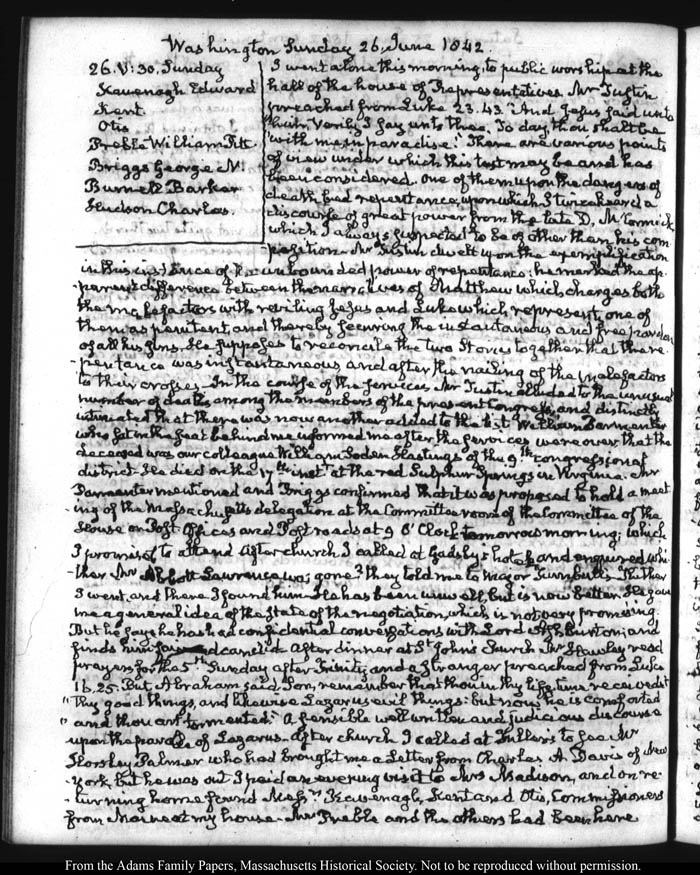 Washington Sunday 26. June 1842.
26. V: 30. Sunday
Kavenagh Edward
Kent.
Otis
Preble William Pitt
Briggs George N.
Burnell Barker
Hudson Charles.
I went alone this morning, to public worship at the
hall of the house of Representatives. Mr Tustin
preached from Luke 23. 43. "And Jesus said unto
"him, Verily I say unto thee, To day, thou shalt be
"with me in paradise." There are various points
of view under which this text may be and has
been considered. One of them upon the dangers of
death bed repentance, upon which I twice heard a
discourse of great power from the late D. McCormick,
which I always suspected to be of other than his com-
position. Mr Tustin dwelt upon the exemplification
in this instance of the unbounded power of repentance: he marked the ap-
-parent difference between the narratives of Matthew which charges both
the malefactors with reviling Jesus and Luke which represents one of
them as penitent, and thereby securing the instantaneous and free pardon
of all his sins. He supposes to reconcile the two Stories together that the re-
-pentance was instantaneous and after the nailing of the malefactors
to their crosses. In the course of the services Mr Tustin alluded to the unusual
number of deaths among the members of the present Congress, and distinctly
intimated that there was now another added to the list. William Parmenter
who sat in the seat behind me informed me after the services were over that the
deceased was our colleague William Soden Hastings of the 9th congressional
district. He died on the 17th inst at the red Sulphur Springs in Virginia. Mr
Parmenter mentioned and Briggs confirmed that it was proposed to hold a meet-
ing of the Massachusetts delegation at the Committee room of the Committee of the
House on Post Offices and Post roads at 9 O'Clock tomorrow morning; which
I promised to attend. After church I called at Gadsby's hotel, and enquired whi-
-ther Mr Abbott Lawrence was gone? they told me to Major Turnbull's. Thither
I went, and there I found him. He has been unwell, but is now better. He gave
me a general idea of the state of the negotiation, which is not very promising.
But he says he has had confidential conversations with Lord Ashburton; and
finds him fair and candid. After dinner at St. John's Church Mr Hawley read
prayers for the 5th Sunday after Trinity, and a stranger preached from Luke
16. 25. But Abraham said, Son, remember that thou in thy life time receivedst
"thy good things, and likewise Lazarus evil things: but now he is comforted
"and thou art tormented." A sensible well written and judicious discourse
upon the parable of Lazarus. After church I called at Fuller's to see Mr
Horsley Palmer who had brought me a Letter from Charles A. Davis of New
-York, but he was out. I paid an evening visit to Mrs Madison, and on re-
-turning home found Messrs Kavenagh, Kent and Otis, Commissioners
from Maine at my house. Mr Preble and the others had been here
From the Adams Family Papers, Massachusetts Historical Society. Not to be reproduced without permission.